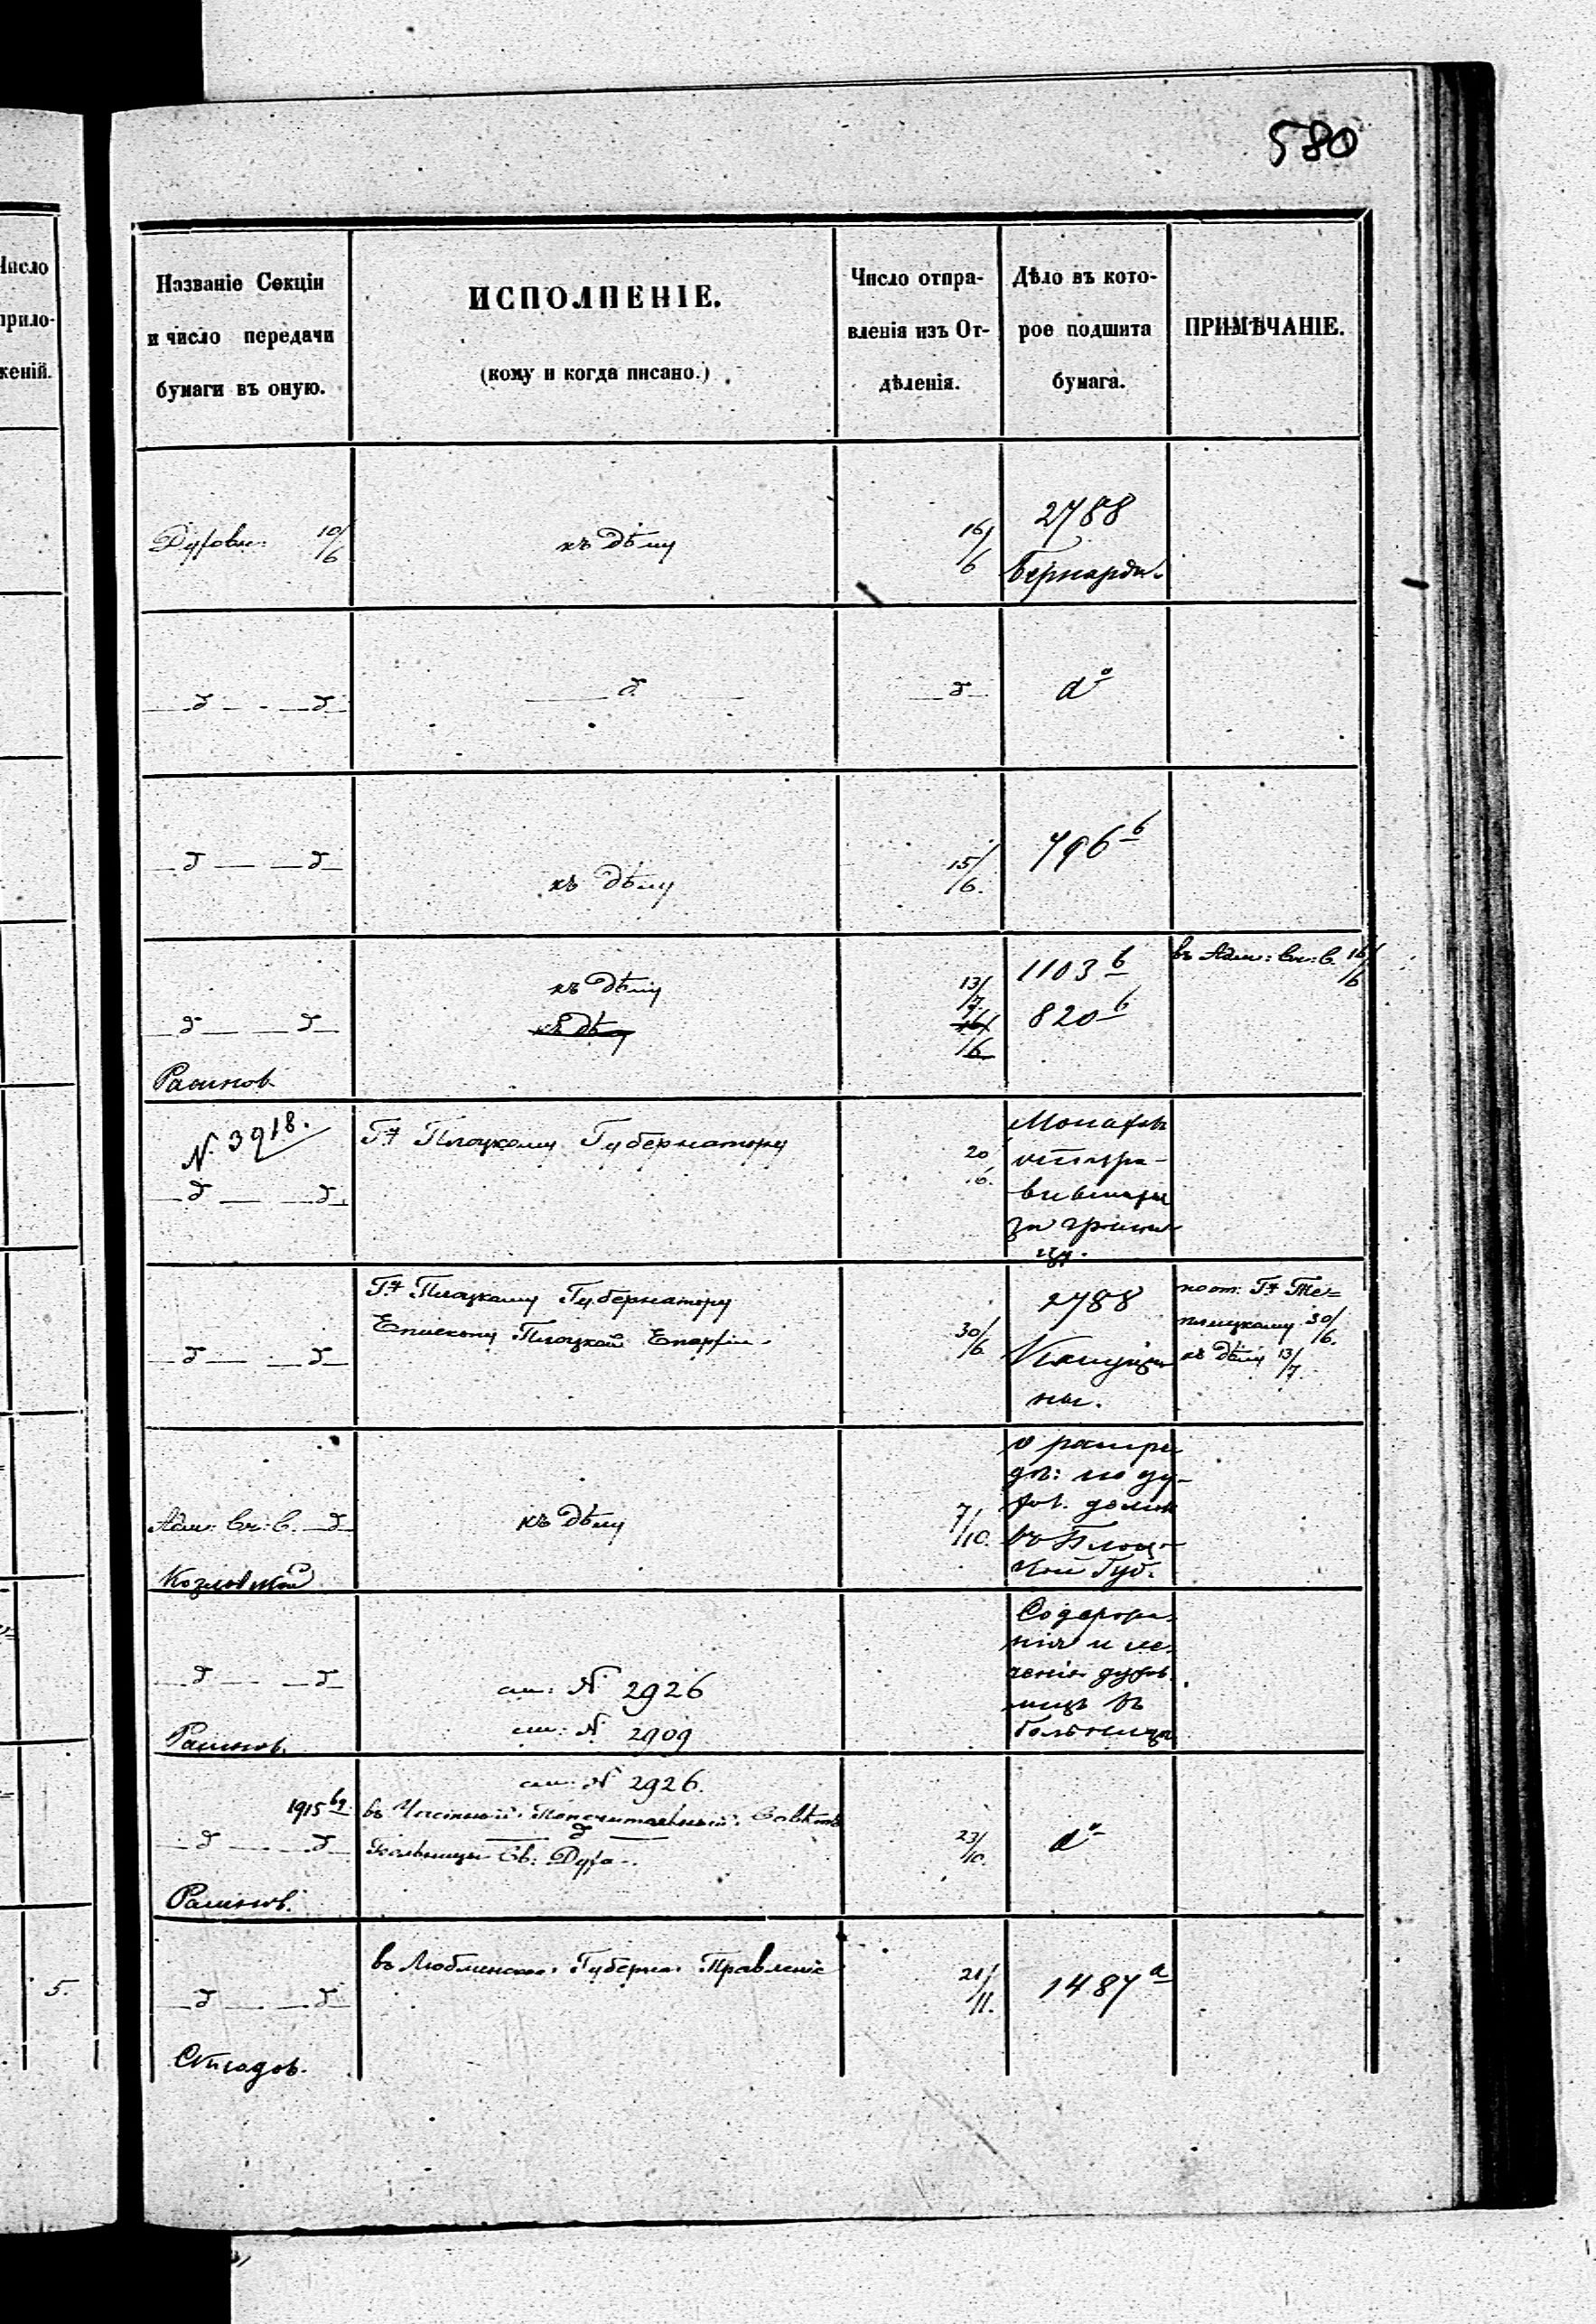 580
Число
прило-
женій.
Названіе Секціи
и число передачи
бумаги въ оную.
ИСПОЛНЕНІЕ.
(кому и когда писано.)
Число отпра-
вленія изъ От-
дѣленія.
Дѣло въ кото-
рое подшита
бумага.
ПРИМѢЧАНІЕ.
Духовн: 10/6
къ Дѣлу
16/6
2788
Бернарди.
d°
къ Дѣлу
15/6.
796 b
къ Дѣлу
къ Дѣлу
13/7.
16/6
1103 b
820 b
въ Адм: 16/6
N. 3918.
Гну Плоцкому Губернатору
20/6.
Монахи
отпра-
вившіеся
за грани-
цу.
Гну Плоцкому Губернатору
Епископу Плоцкой Епархіи.
30/6
2788
30/6.
къ Дѣлу 13/7.
Адм:
Козловскій
къ Дѣлу
7/10.
о распре-
дѣ: по ду-
хов. долж
въ Плоц-
кой Губ.
см: N. 2926
см: N. 2909
Содержа-
нія и ле-
ченія духов.
лицъ въ
больницахъ
1915
см: N 2926.
въ Частный Попечительный Совѣтъ
Больницы Св. Духа.
23/10.
d°
въ Люблинское Губерн. Правленіе
21/11.
1487 a
5.